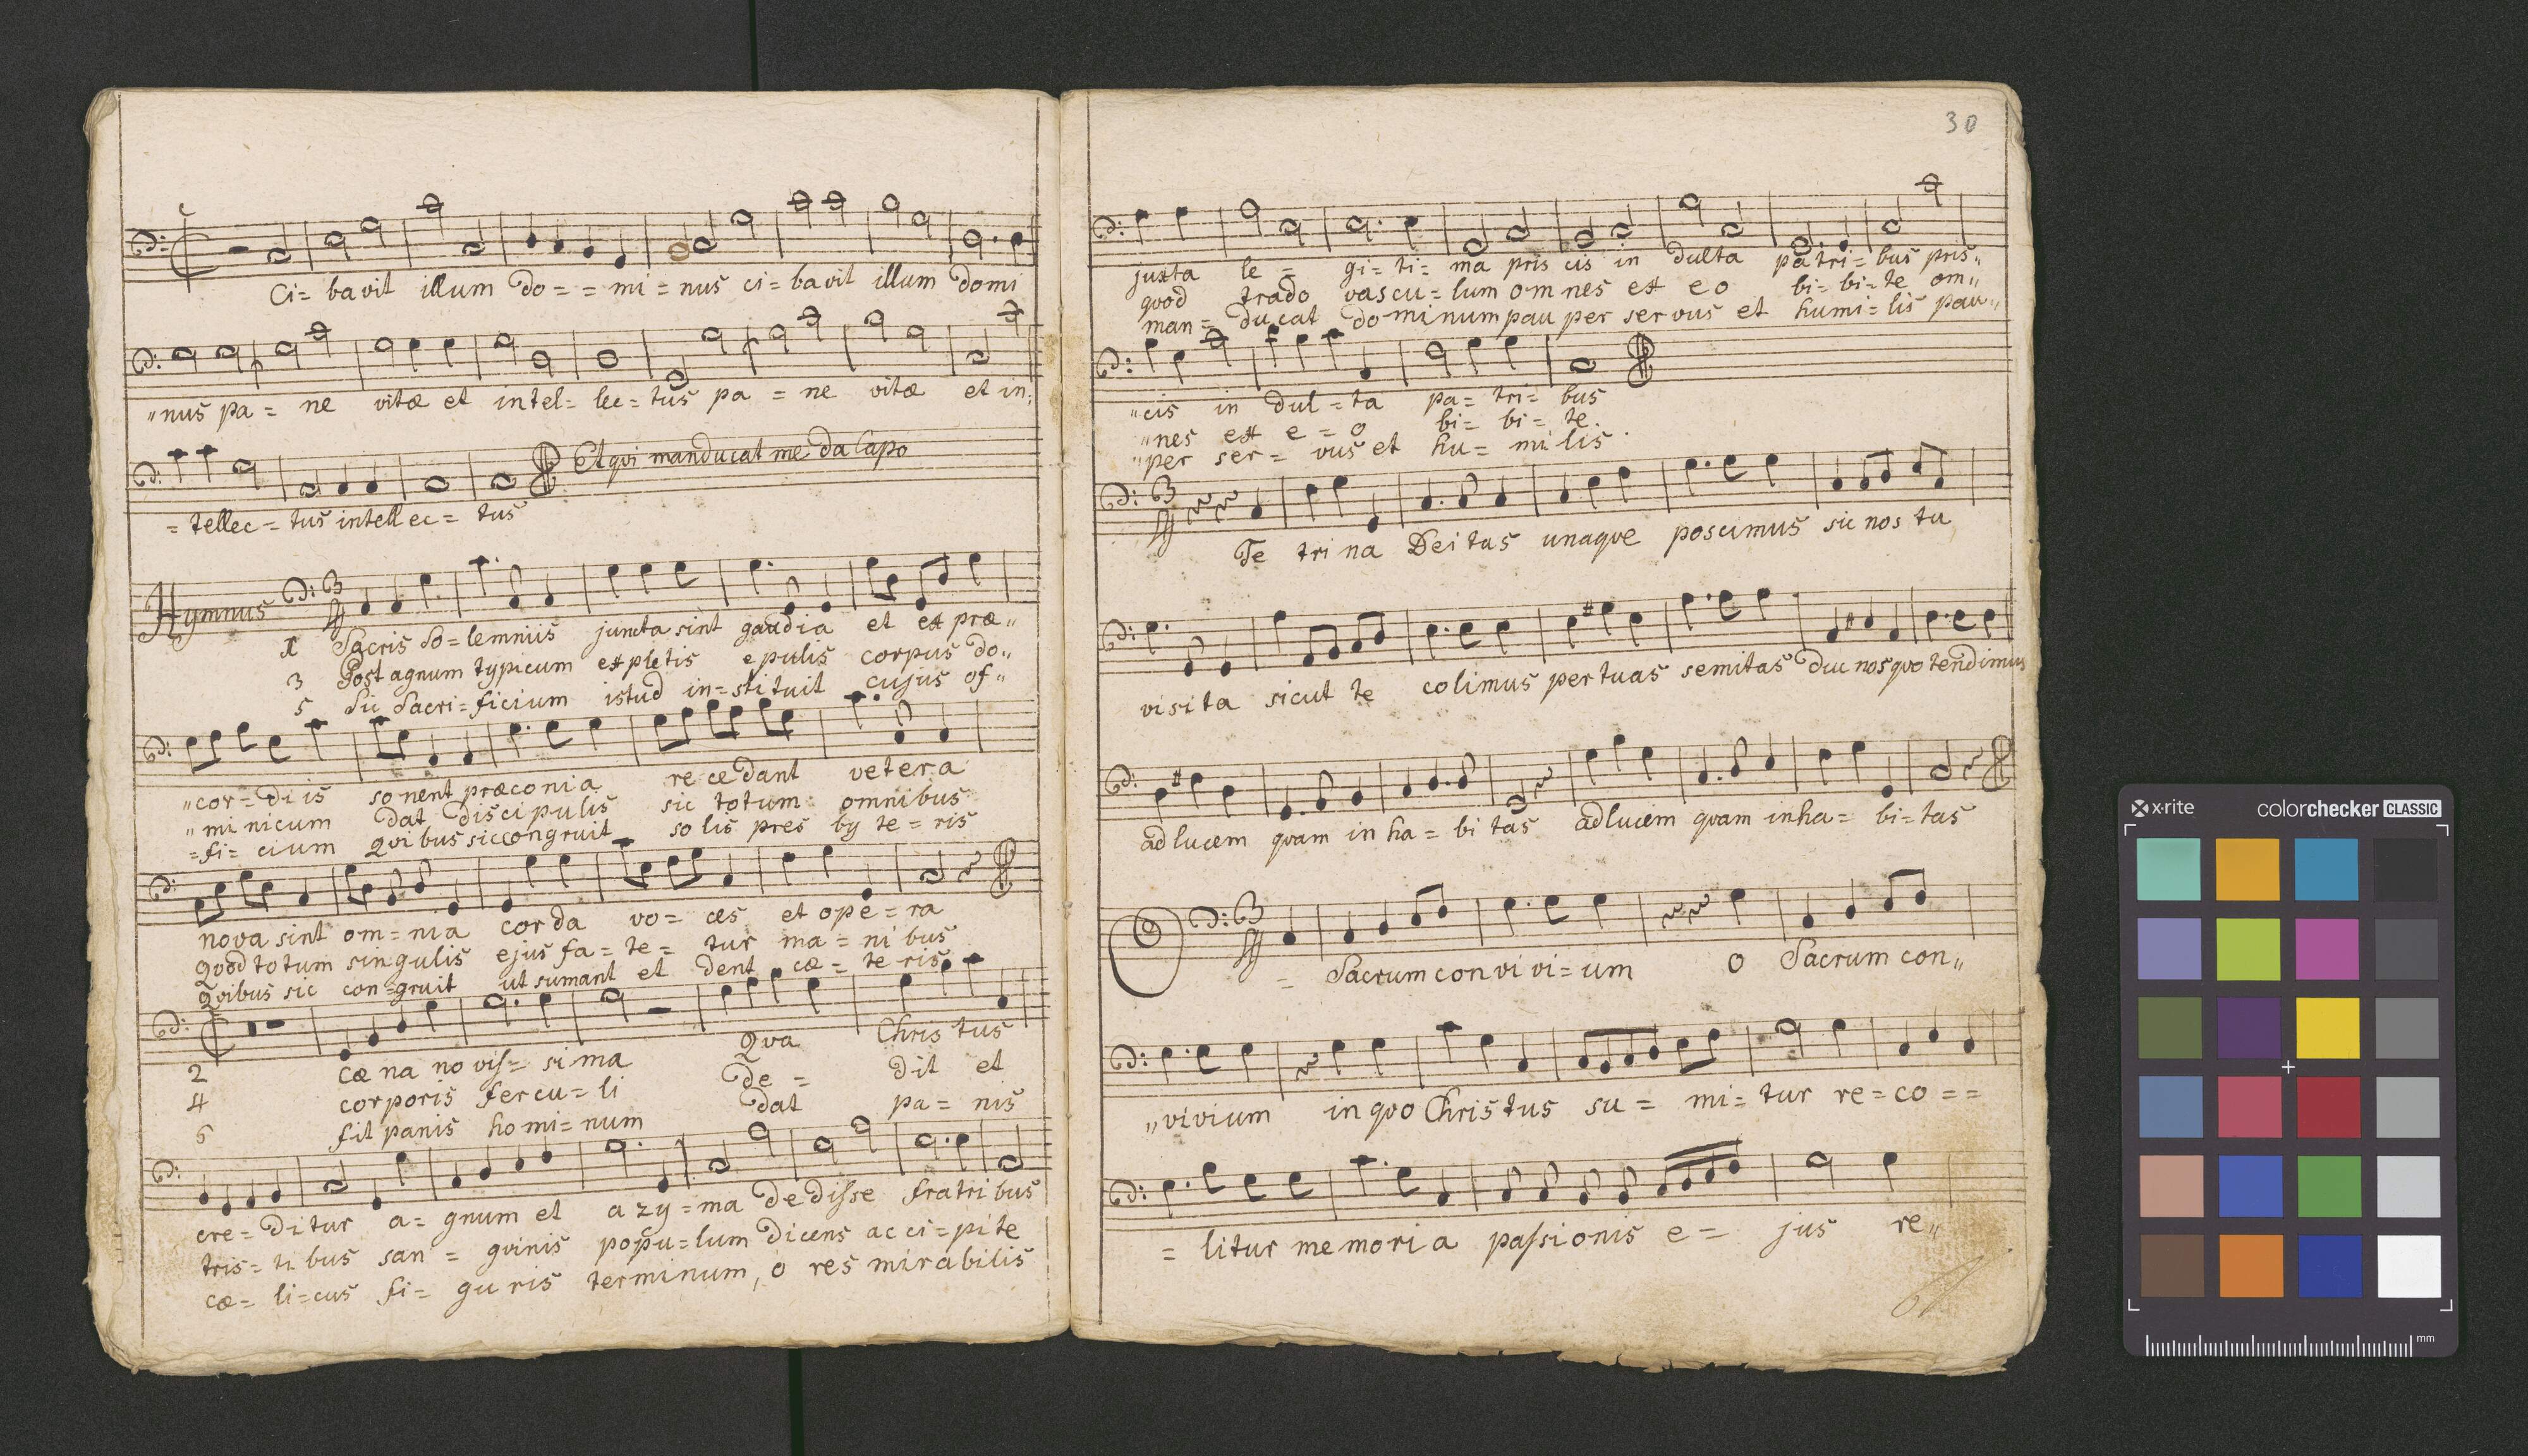 Ci= bavit illum Do= = mi = nus ci= bavit illum Domi
"nus pa = ne vitæ et intel= lec= tus pa = ne vitæ et in=
Et qvi manducat me Da Capo
= tellec = tus intellec = tus
Hymnus 3
1 Sacris So= lemniis juncta sint gaudia et ex præ"
3 Post agnum typicum expletis epulis corpus Do"
5 Sic Sacri= ficium istud in= stituit cujus of"
"cor= Diis sonent præconia recedant vetera
"minicum Dat Discipulis sic totum omnibus
=fi= cium qvibus sic congruit solis pres by te= ris
nova sint om= nia corda vo= ces et ope= ra
Qvod totum singulis ejus fa= te= tur ma= nibus
Qvibus sic con= gruit ut sumant et Dent cæ= te ris
2 cæna novis= sima Qva Christus
4 corporis fercu= li De= Dit et
6 fit panis homi= num Dat pa= nis
cre= Ditur a= gnum et azy= ma Dedisse fratribus
tris= tibus san = gvinis popu= lum Dicens acci= pite
cæ= li=cus fi= guris terminum, o res mirabilis
30
juxta le = gi= ti= ma pris cis in Dulta patri= bus pris"
qvod trado vascu= lum omnes ex eo bi= bi= te om"
man= Ducat Dominum pau per servus et humi= lis pau"
"cis in Dul= ta pa= tri= bus
"nes ex e= o bi= bi= te.
"per ser= vus et hu= mi lis.
3
Te trina Deitas unaqve poscimus sic nos tu
visita sicut te colimus per tuas semitas Duc nos qvo tendimus
ad lucem qvam inha= bi tas ad lucem qvam inha= bi= tas
O 3
= Sacrum convivi= um O Sacrum con"
"vivium in qvo Christus su= mi= tur re= co = =
= litur memoria passionis e= jus re"
x·rite colorchecker CLASSIC
mm